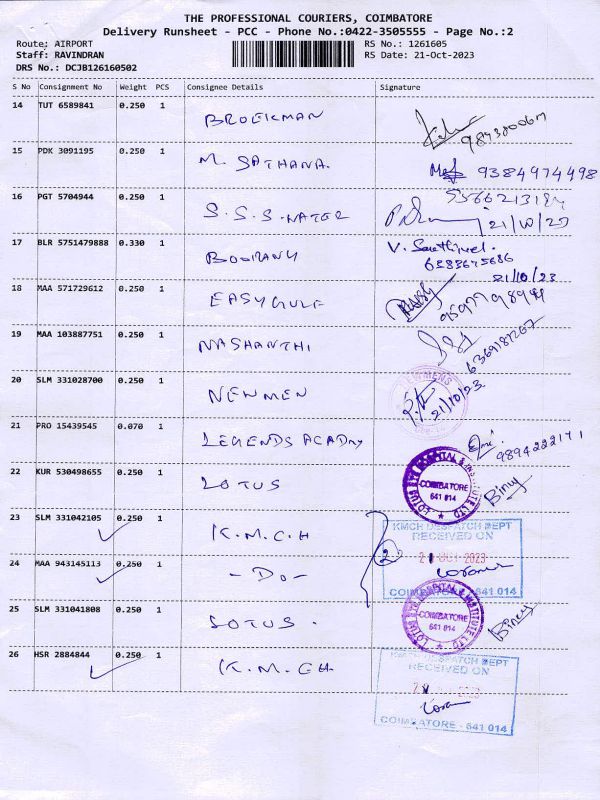 THE PROFESSIONAL COURIERS, COIMBATORE
Delivery Runsheet - PCC - Phone No.:0422-3505555 - Page No.:2
Route: AIRPORT RS No.: 1261605
Staff: RAVINDRAN RS Date: 21-Oct-2023
DRS No.: DCJB126160502
S No Consignment No Weight PCS Consignee Details Signature
14 TUT 6589841 0.250 1 BROEKMAN
15 PDK 3091195 0.250 1 M. SATHANA. 9384974498
16 PGT 5704944 0.250 1 S.S.S. 21/10/23
17 BLR 5751479888 0.330 1 V. 6383675686
21/10/23
18 MAA 571729612 0.250 1 EASYGULF
19 MAA 103887751 0.250 1 NASHANTHI
20 SLM 331028700 0.250 1 NEWMEN 21/10/23
21 PRO 15439545 0.070 1 LEGENDS ACADMY
22 KUR 530498655 0.250 1 LOTUS COIMBATORE 641 014 Binu
23 SLM 331042105 0.250 1 K.M.C.H
KMCH DESPATCH DEPT
RECEIVED ON
24 MAA 943145113 0.250 1 - DO - 2 OCT 2023
COIMBATORE - 641 014
25 SLM 331041808 0.250 1 LOTUS. COIMBATORE 641 014 Binu
26 HSR 2884844 0.250 1 K.M.CH
KMCH DESPATCH DEPT
RECEIVED ON
COIMBATORE - 641 014